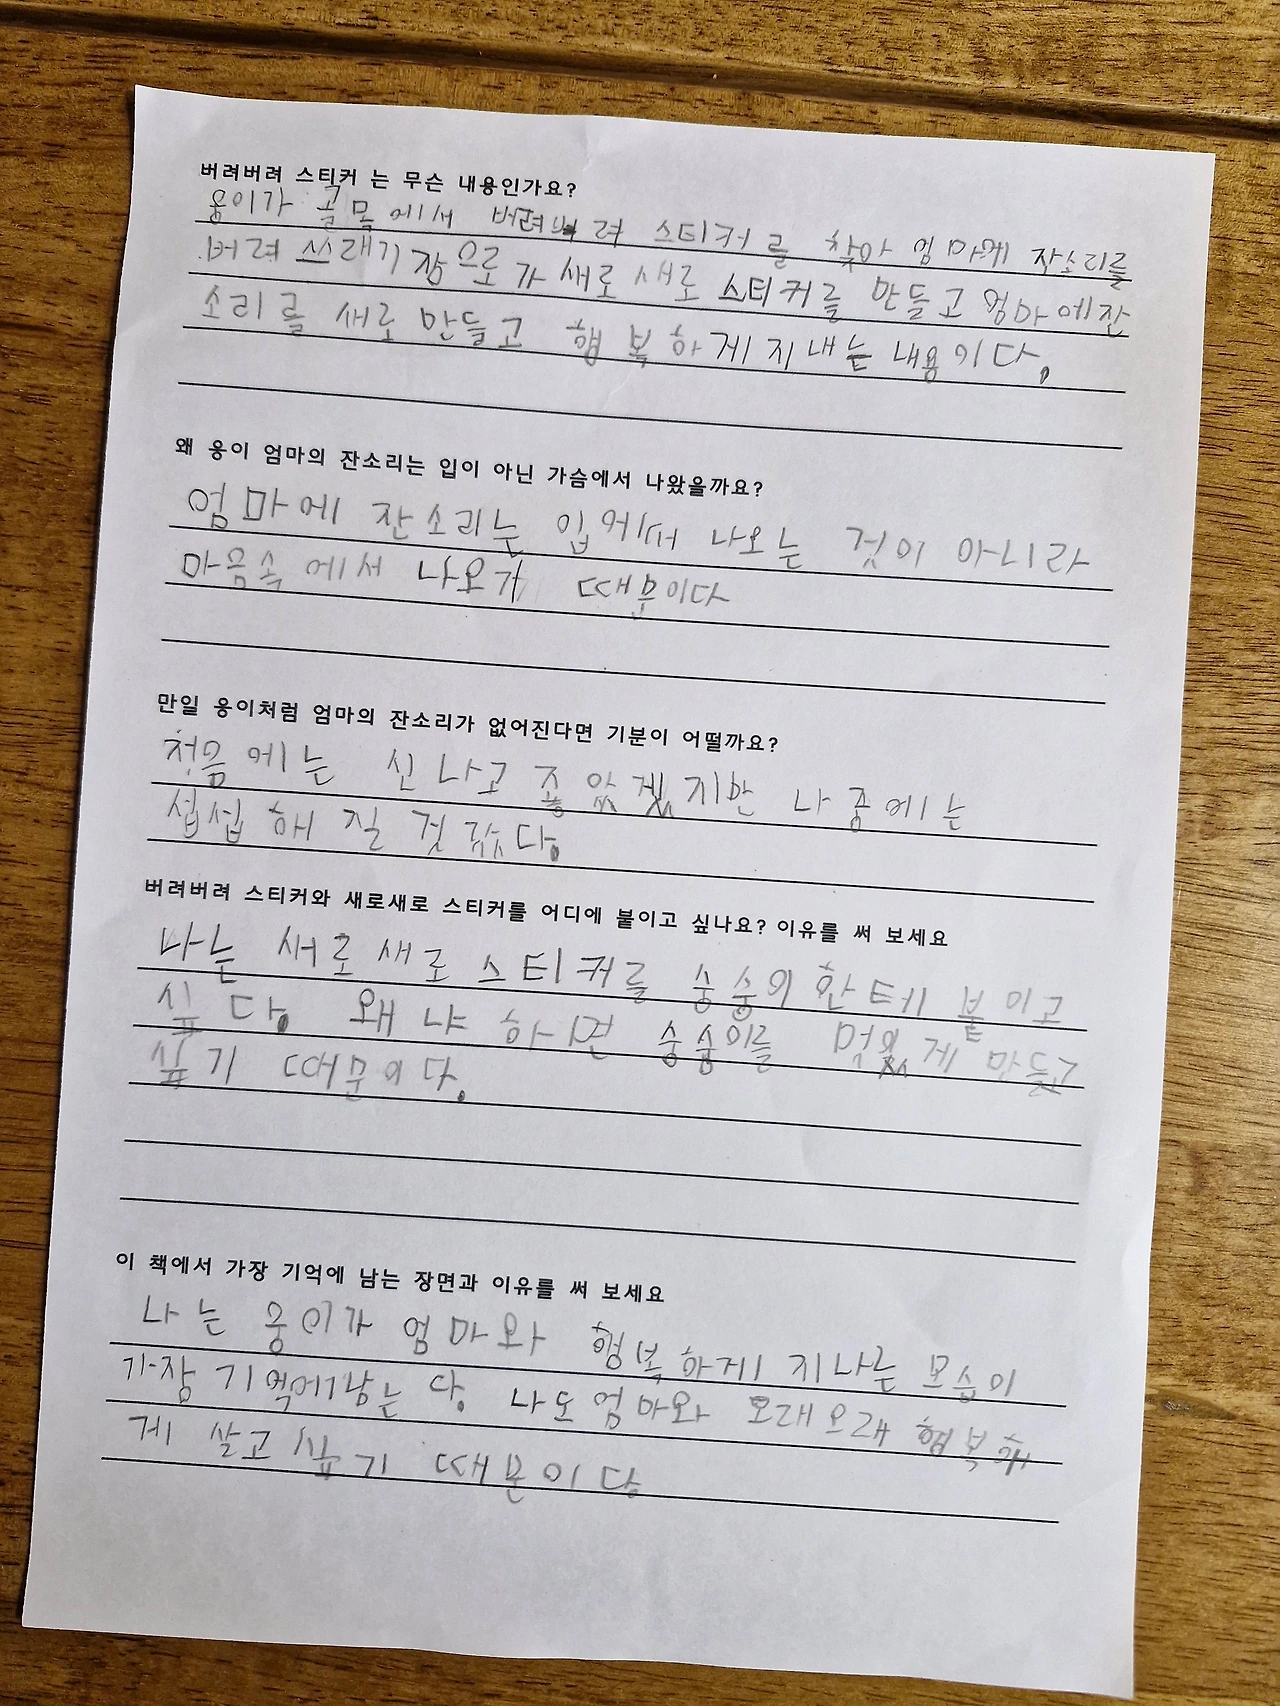 버려버려 스티커 는 무슨 내용인가요?
웅이가 골목에서 버려버려 스티커를 찾아 엄마께 잔소리를
버려 쓰래기장으로가 새로 새로 스티커를 만들고 엄마에잔
소리를 새로만들고 행복하게지내는 내용이다.
왜 웅이 엄마의 잔소리는 입이 아닌 가슴에서 나왔을까요?
엄마에 잔소리는 입에서 나오는 것이 아니라
마음속에서 나오기 때문이다
만일 웅이처럼 엄마의 잔소리가 없어진다면 기분이 어떨까요?
처음에는 신나고 좋았겠지만 나중에는
섭섭해질것 같다.
버려버려 스티커와 새로새로 스티커를 어디에 붙이고 싶나요? 이유를 써 보세요
나는 새로새로 스티커를 숭숭이한테 붙이고
싶다. 왜냐하면 숭숭이를 멋있게 만들고
싶기 때문이다.
이 책에서 가장 기억에 남는 장면과 이유를 써 보세요
나는 웅이가 엄마와 행복하게 지나는 모습이
가장 기억에남는다. 나도엄마와 오래오래 행복하
게 살고싶기 때문이다